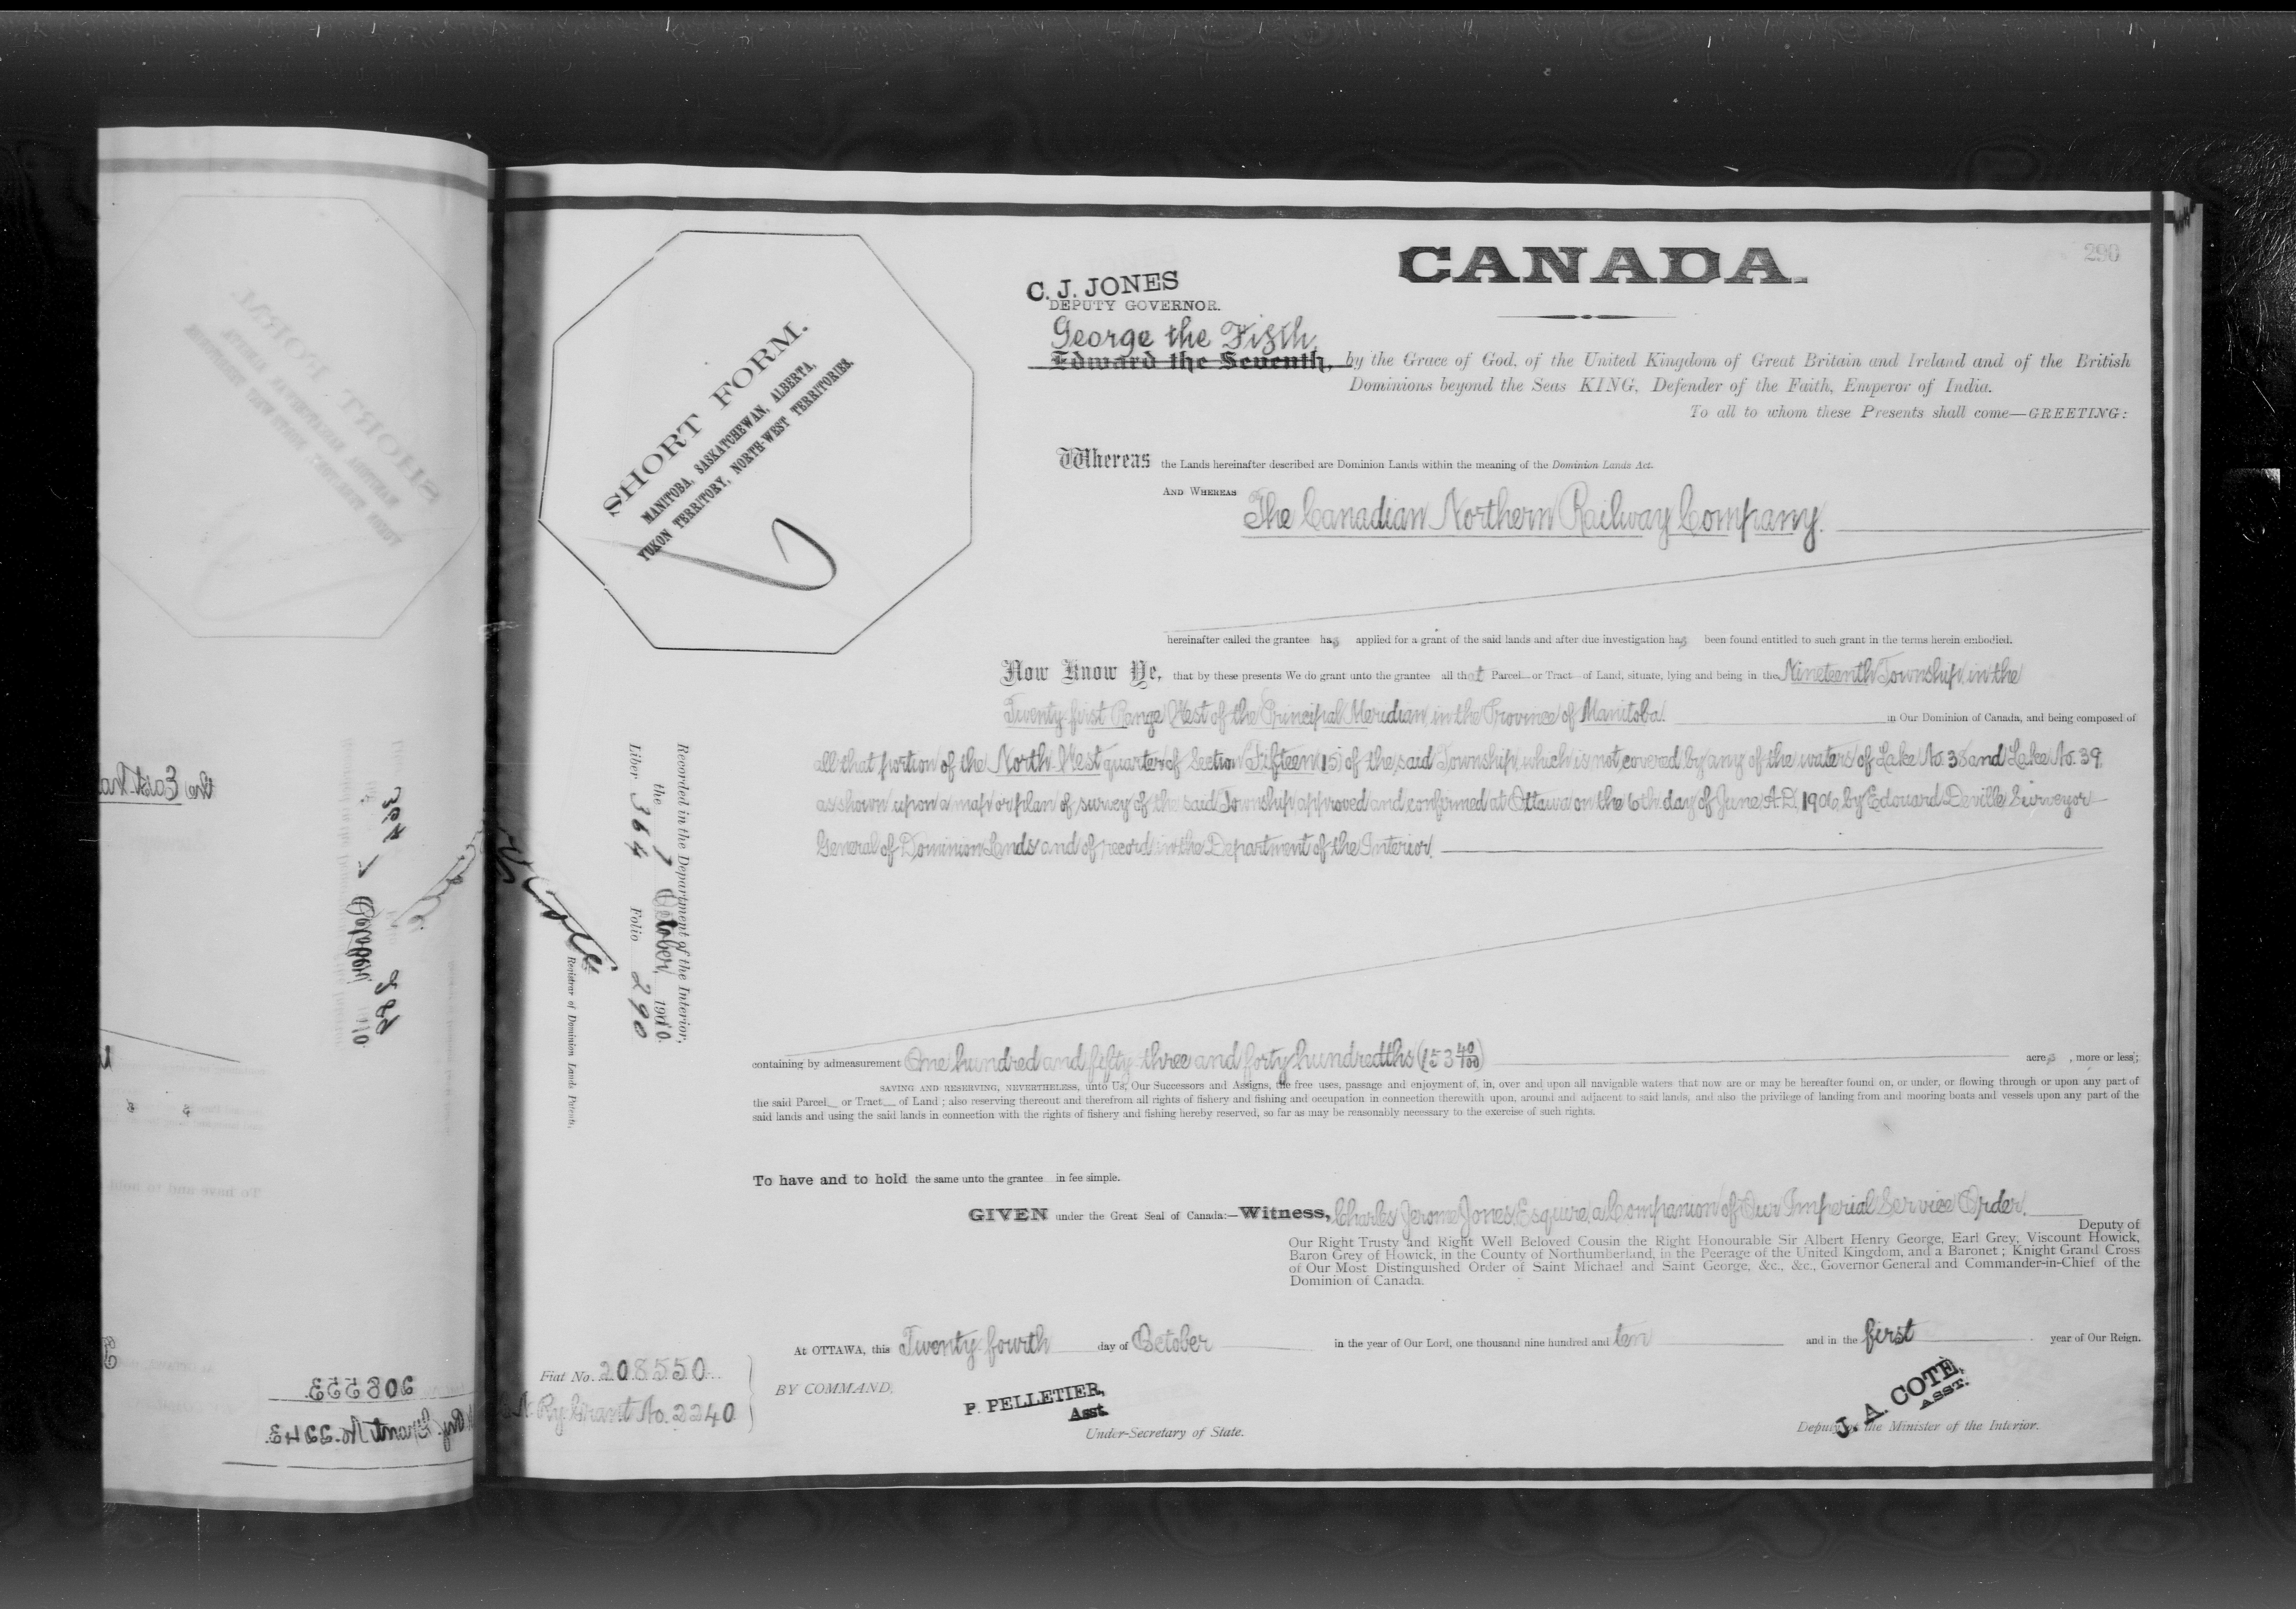 CANADA.
290
C. J. JONES
DEPUTY GOVERNOR.
George the Fifth,
Edward the Seventh, by the Grace of God, of the United Kingdom of Great Britain and Ireland and of the British
Dominions beyond the Seas KING, Defender of the Faith, Emperor of India.
To all to whom these Presents shall come—GREETING:
SHORT FORM.
MANITOBA, SASKATCHEWAN, ALBERTA,
YUKON TERRITORY, NORTH-WEST TERRITORIES.
Whereas the Lands hereinafter described are Dominion Lands within the meaning of the Dominion Lands Act.
AND WHEREAS The Canadian Northern Railway Company.
hereinafter called the grantee has applied for a grant of the said lands and after due investigation has been found entitled to such grant in the terms herein embodied.
Now Know Ye, that by these presents We do grant unto the grantee all that Parcel or Tract of Land, situate, lying and being in the Nineteenth Township, in the
Twenty-first Range West of the Principal Meridian, in the Province of Manitoba. in Our Dominion of Canada, and being composed of
all that portion of the North West quarter of Section Fifteen (15) of the said Township, which is not covered by any of the waters of Lake No. 38 and Lake No. 39,
as shown upon a map or plan of survey of the said Township approved and confirmed at Ottawa on the 6th day of June A.D. 1906, by Edouard Deville Surveyor
General of Dominion Lands and of record in the Department of the Interior.
Recorded in the Department of the Interior,
the 7 October, 1910.
Liber 364 Folio 290
Registrar of Dominion Lands Patents.
containing by admeasurement One hundred and fifty three and forty hundredths (153 40/100) acres, more or less;
SAVING AND RESERVING, NEVERTHELESS, unto Us, Our Successors and Assigns, the free uses, passage and enjoyment of, in, over and upon all navigable waters that now are or may be hereafter found on, or under, or flowing through or upon any part of
the said Parcel or Tract of Land; also reserving thereout and therefrom all rights of fishery and fishing and occupation in connection therewith upon, around and adjacent to said lands, and also the privilege of landing from and mooring boats and vessels upon any part of the
said lands and using the said lands in connection with the rights of fishery and fishing hereby reserved, so far as may be reasonably necessary to the exercise of such rights.
To have and to hold the same unto the grantee in fee simple.
GIVEN under the Great Seal of Canada:—Witness, Charles Jerome Jones, Esquire, a Companion of Our Imperial Service Order.
Deputy of
Our Right Trusty and Right Well Beloved Cousin the Right Honourable Sir Albert Henry George, Earl Grey, Viscount Howick,
Baron Grey of Howick, in the County of Northumberland, in the Peerage of the United Kingdom, and a Baronet; Knight Grand Cross
of Our Most Distinguished Order of Saint Michael and Saint George, &c., &c., Governor General and Commander-in-Chief of the
Dominion of Canada.
At OTTAWA, this Twenty fourth day of October in the year of Our Lord, one thousand nine hundred and ten and in the first year of Our Reign.
Fiat No. 208550
N. Ry. Grant No. 2240
BY COMMAND,
P. PELLETIER,
Asst.
Under-Secretary of State.
J. A. COTE,
ASST.
Deputy of the Minister of the Interior.